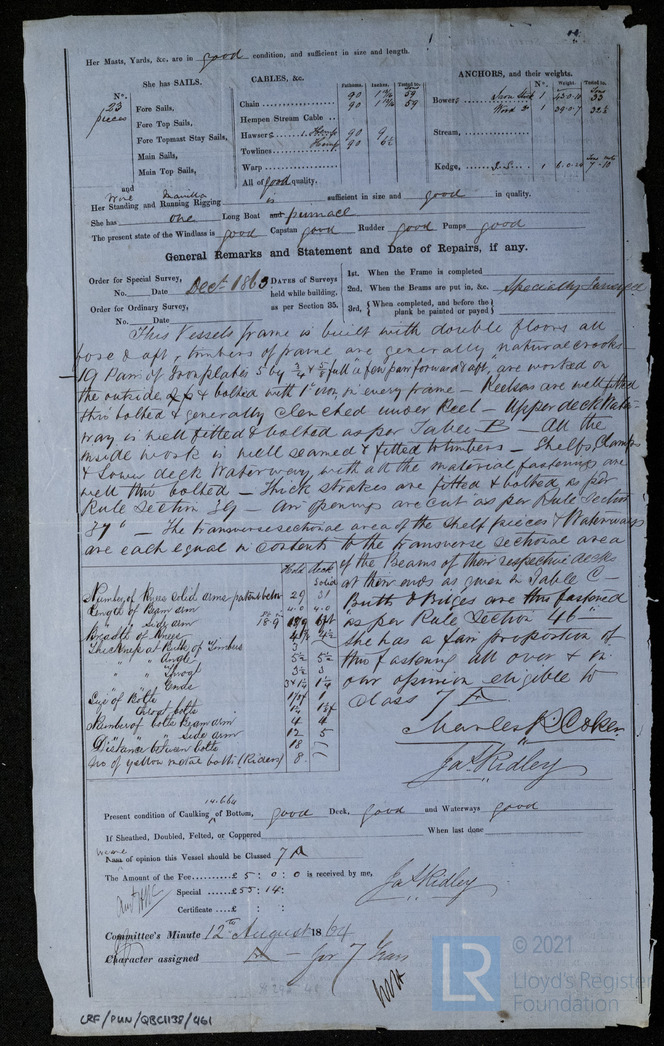 Her Masts, Yards, &c. are in good condition, and sufficient in size and length.
She has SAILS.
No.
23 pieces
Fore Sails,
Fore Top Sails,
Fore Topmast Stay Sails,
Main Sails,
Main Top Sails,
and
CABLES, &c.
Fathoms. Inches. Tested to.
Chain 90 59
90 59
Hempen Stream Cable
Hawsers Hemp 90 9
Towlines Hemp 90 6½
Warp
All of good quality.
ANCHORS, and their weights.
No. Weight. Tested to.
Bowers 1 33
Wood 1 39.0.7 32½
Stream,
Kedge, 1
Wire Manilla
Her Standing and Running Rigging is sufficient in size and good in quality.
She has one Long Boat and pinnace
The present state of the Windlass is good Capstan good Rudder good Pumps good
General Remarks and Statement and Date of Repairs, if any.
Order for Special Survey,
No. Date Dect. 1863
Order for Ordinary Survey,
No. Date
DATES of Surveys
held while building,
as per Section 35.
1st. When the Frame is completed
2nd. When the Beams are put in, &c. Specially Surveyed
3rd, { When completed, and before the plank be painted or payed }
This Vessels frame is built with double floors all
fore & aft, timbers of frame are generally natural crooks
19 Pair of Iron plates 5 by ¾ & ⅝ full a few pair forward & aft, are worked on
the outside & bolted with 1" iron in every frame — Keelsons are well fitted
thro' bolted & generally clenched under Keel — Upper deck Water-
way is well fitted & bolted as per Table B — All the
inside work is well seamed & fitted to timbers — Shelfs, Clamps
& Lower deck Waterway, with all the material fastenings are
well thro bolted — Thick strakes are fitted & bolted as per
Rule Section 39 — air openings are cut as per Rule Section
39" — The transverse sectional area of the Shelf pieces & Waterways
are each equal in contents to the transverse sectional area
of the Beams of their respective decks
at their ends as given in Table C —
Butts & Bilges are thro fastened
as per Rule Section 46 —
She has a fair proportion of
thro fastening all over & in
our opinion eligible to
Class 7 A
Charles R Coker
Jas Ridley
Hold deck
Solid
Number of Knees solid arms patent below 29 31
Length of Beam arm 4.0 4.0
" " Side arm
Breadth of Knees 4½
Thickness at Butts of Timbers 3
" " Angle 5½ 5½
" " Throat 3½ 3
" " Ends 1¼
Size of Bolts 1
" Throat bolts
Number of bolts Beam arm 4 4
" " Side arm 12 5
Distance between bolts 18
No of yellow metal bolts (Riders) 8
Present condition of Caulking of Bottom, good Deck, good and Waterways good
If Sheathed, Doubled, Felted, or Coppered When last done
We are of opinion this Vessel should be Classed 7 A
The Amount of the Fee £ 5 : 0 : 0 is received by me,
Special £ 55 : 14 :
Certificate £ : :
Jas Ridley
Committee's Minute 12th August 1864
Character assigned A — for 7 Years
LRF/PUN/QBC1138/461
LR
© 2021
Lloyd's Register
Foundation